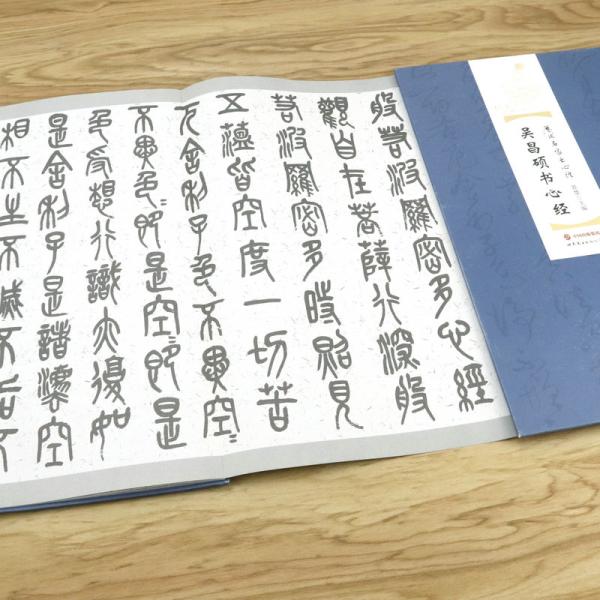 般若波羅密多心經
觀自在菩薩行深般
若波羅密多時照見
五蘊皆空度一切苦
厄舍利子色不異空〻
不異色〻即是空〻即是
色受想行識亦復如
是舍利子是諸灋空
相不生不滅不垢不
吴昌硕书心经